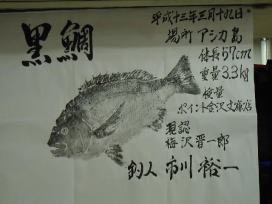 黒鯛
平成十三年三月十九日
場所 アシカ島
体長57cm
重量3.3kg
検量
ポイント金沢文庫店
現認
梅沢晋一郎
釣人 市川裕一